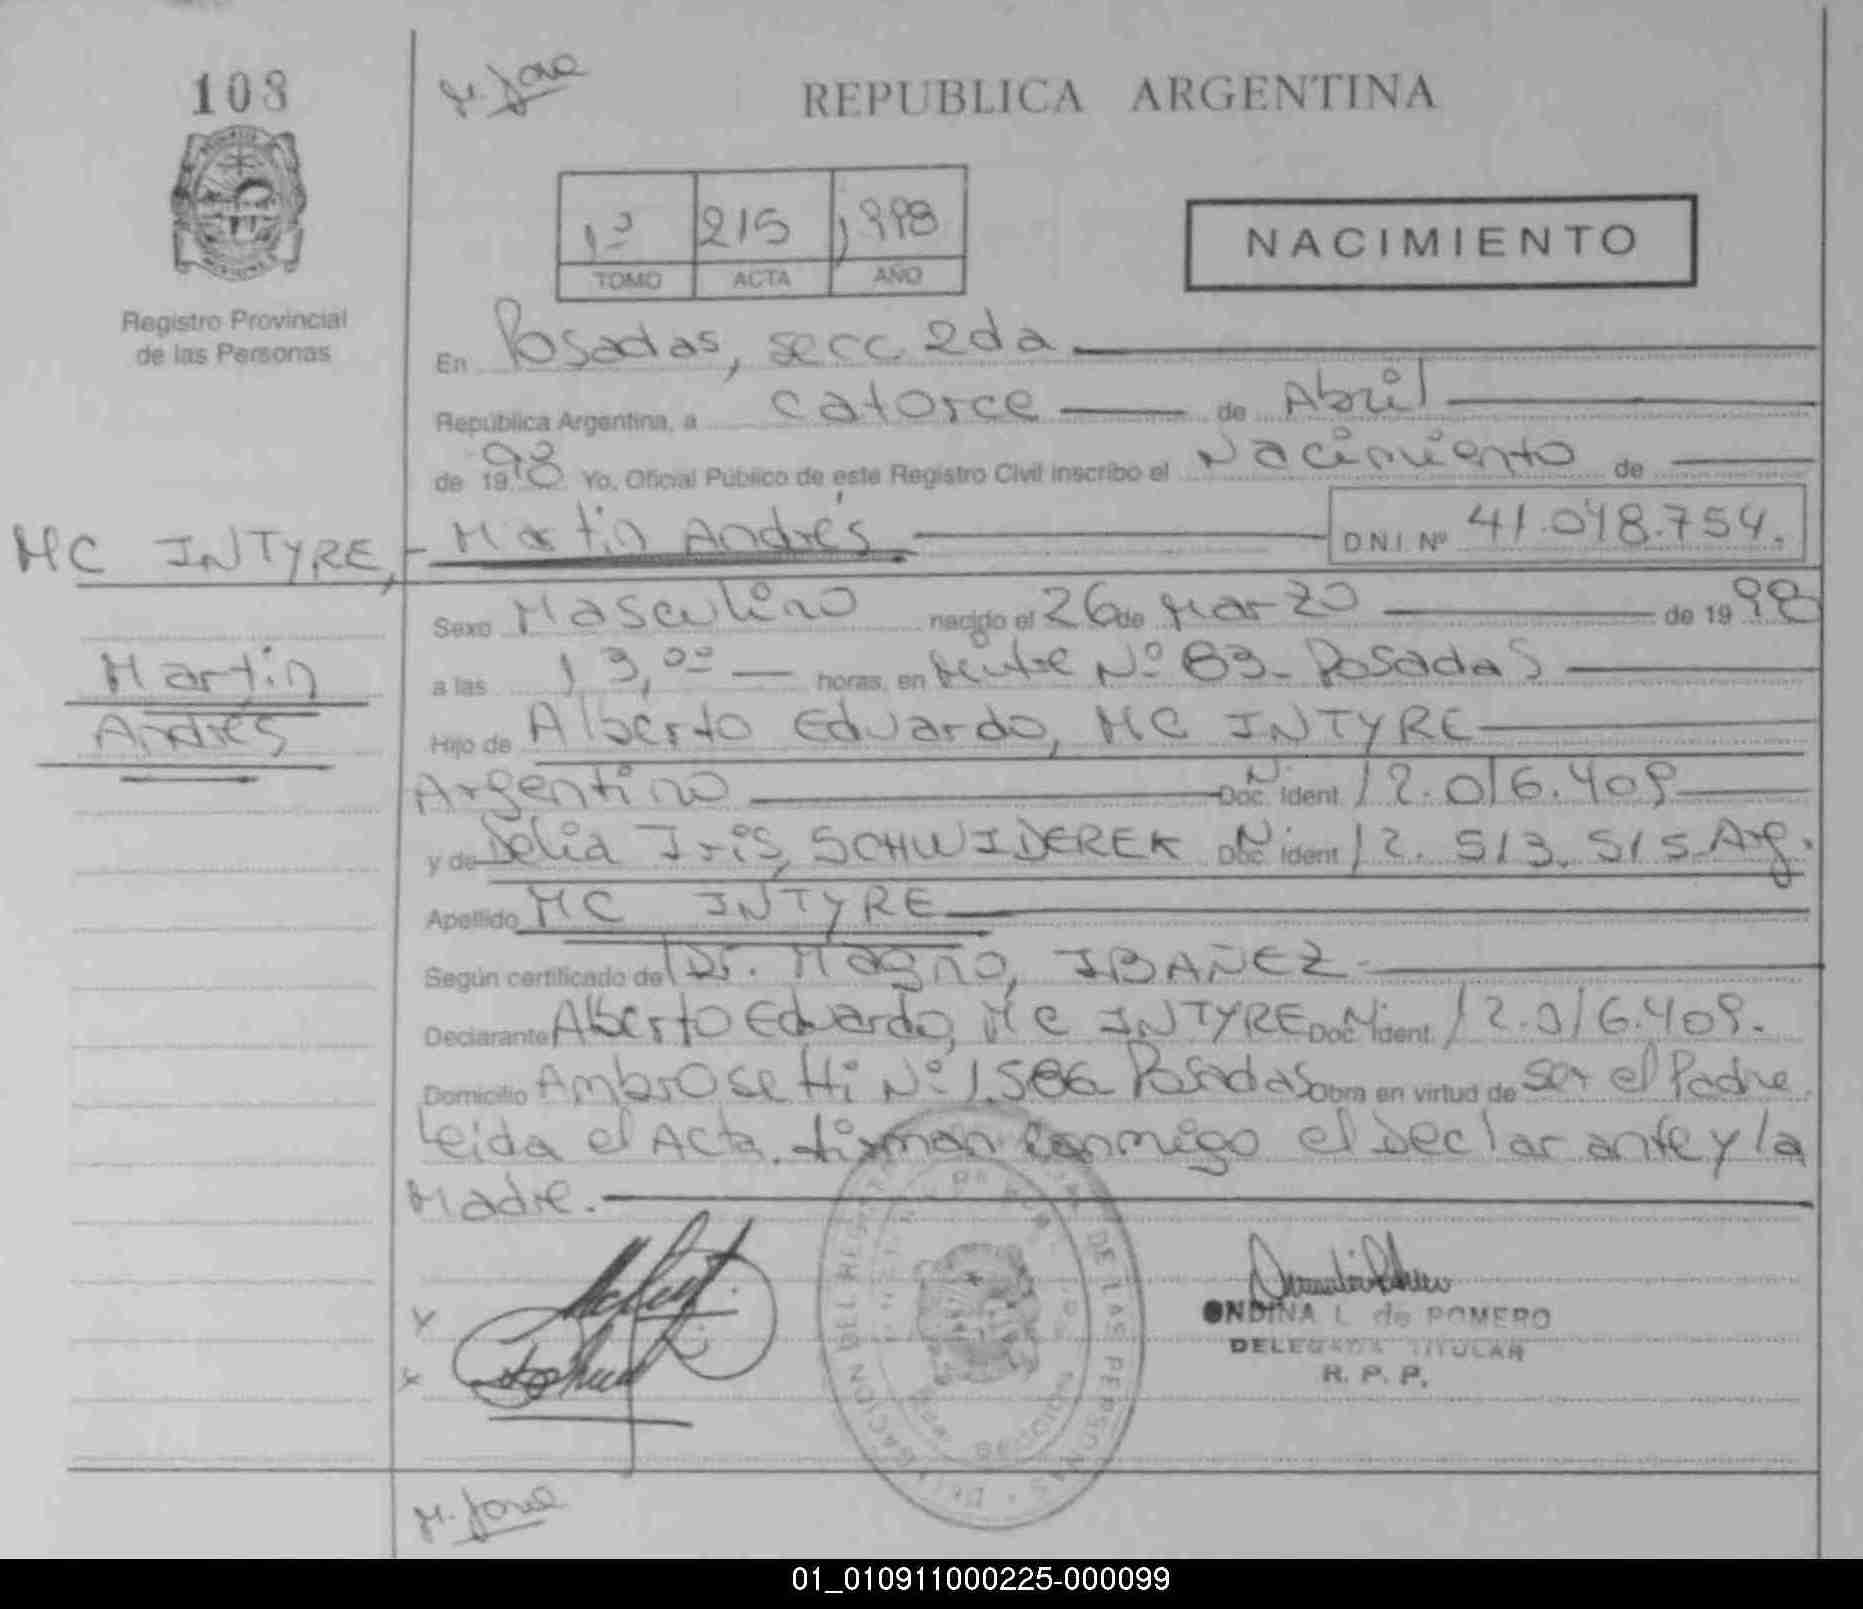 108
M. Jose
REPUBLICA ARGENTINA
1º 215 1998
TOMO ACTA AÑO
NACIMIENTO
Registro Provincial
de las Personas
En Posadas, secc 2da
República Argentina, a catorce de Abril
de 1998 Yo, Oficial Público de este Registro Civil inscribo el Nacimiento de
MC INTYRE, Martin Andrés D.N.I. Nº 41.048.754.
Sexo Masculino nacido el 26 de Marzo de 1998
Martin
Andrés
a las 13,00 horas, en Nº 83- Posadas
Hijo de Alberto Eduardo, MC INTYRE
Argentino Doc. Ident. 12.016.409
y de Delia Iris, SCHWIDEREK Doc. Ident. 12.513.515 Arg.
Apellido MC INTYRE
Según certificado del Dr. Magno, IBAÑEZ-
Declarante Alberto Eduardo, Mc INTYRE Doc. Ident. 12.016.409.
Domicilio Ambrosetti Nº 1.586 Posadas Obra en virtud de ser el Padre
Leida el Acta, firman conmigo el Declarante y la
Madre.
DELEGACION DEL REGISTRO DE LAS PERSONAS
ONDINA L. de ROMERO
DELEGADA TITULAR
R. P. P.
M. Jose
01_010911000225-000099